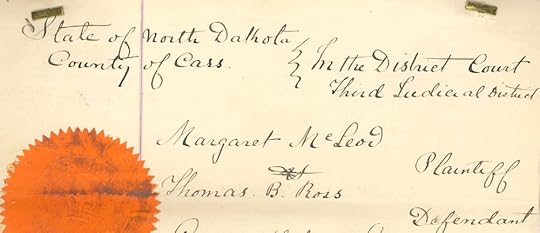 State of North Dakota
County of Cass.
In the District Court
Third Judicial District
Margaret McLeod
Plaintiff
Thomas. B. Ross
Defendant